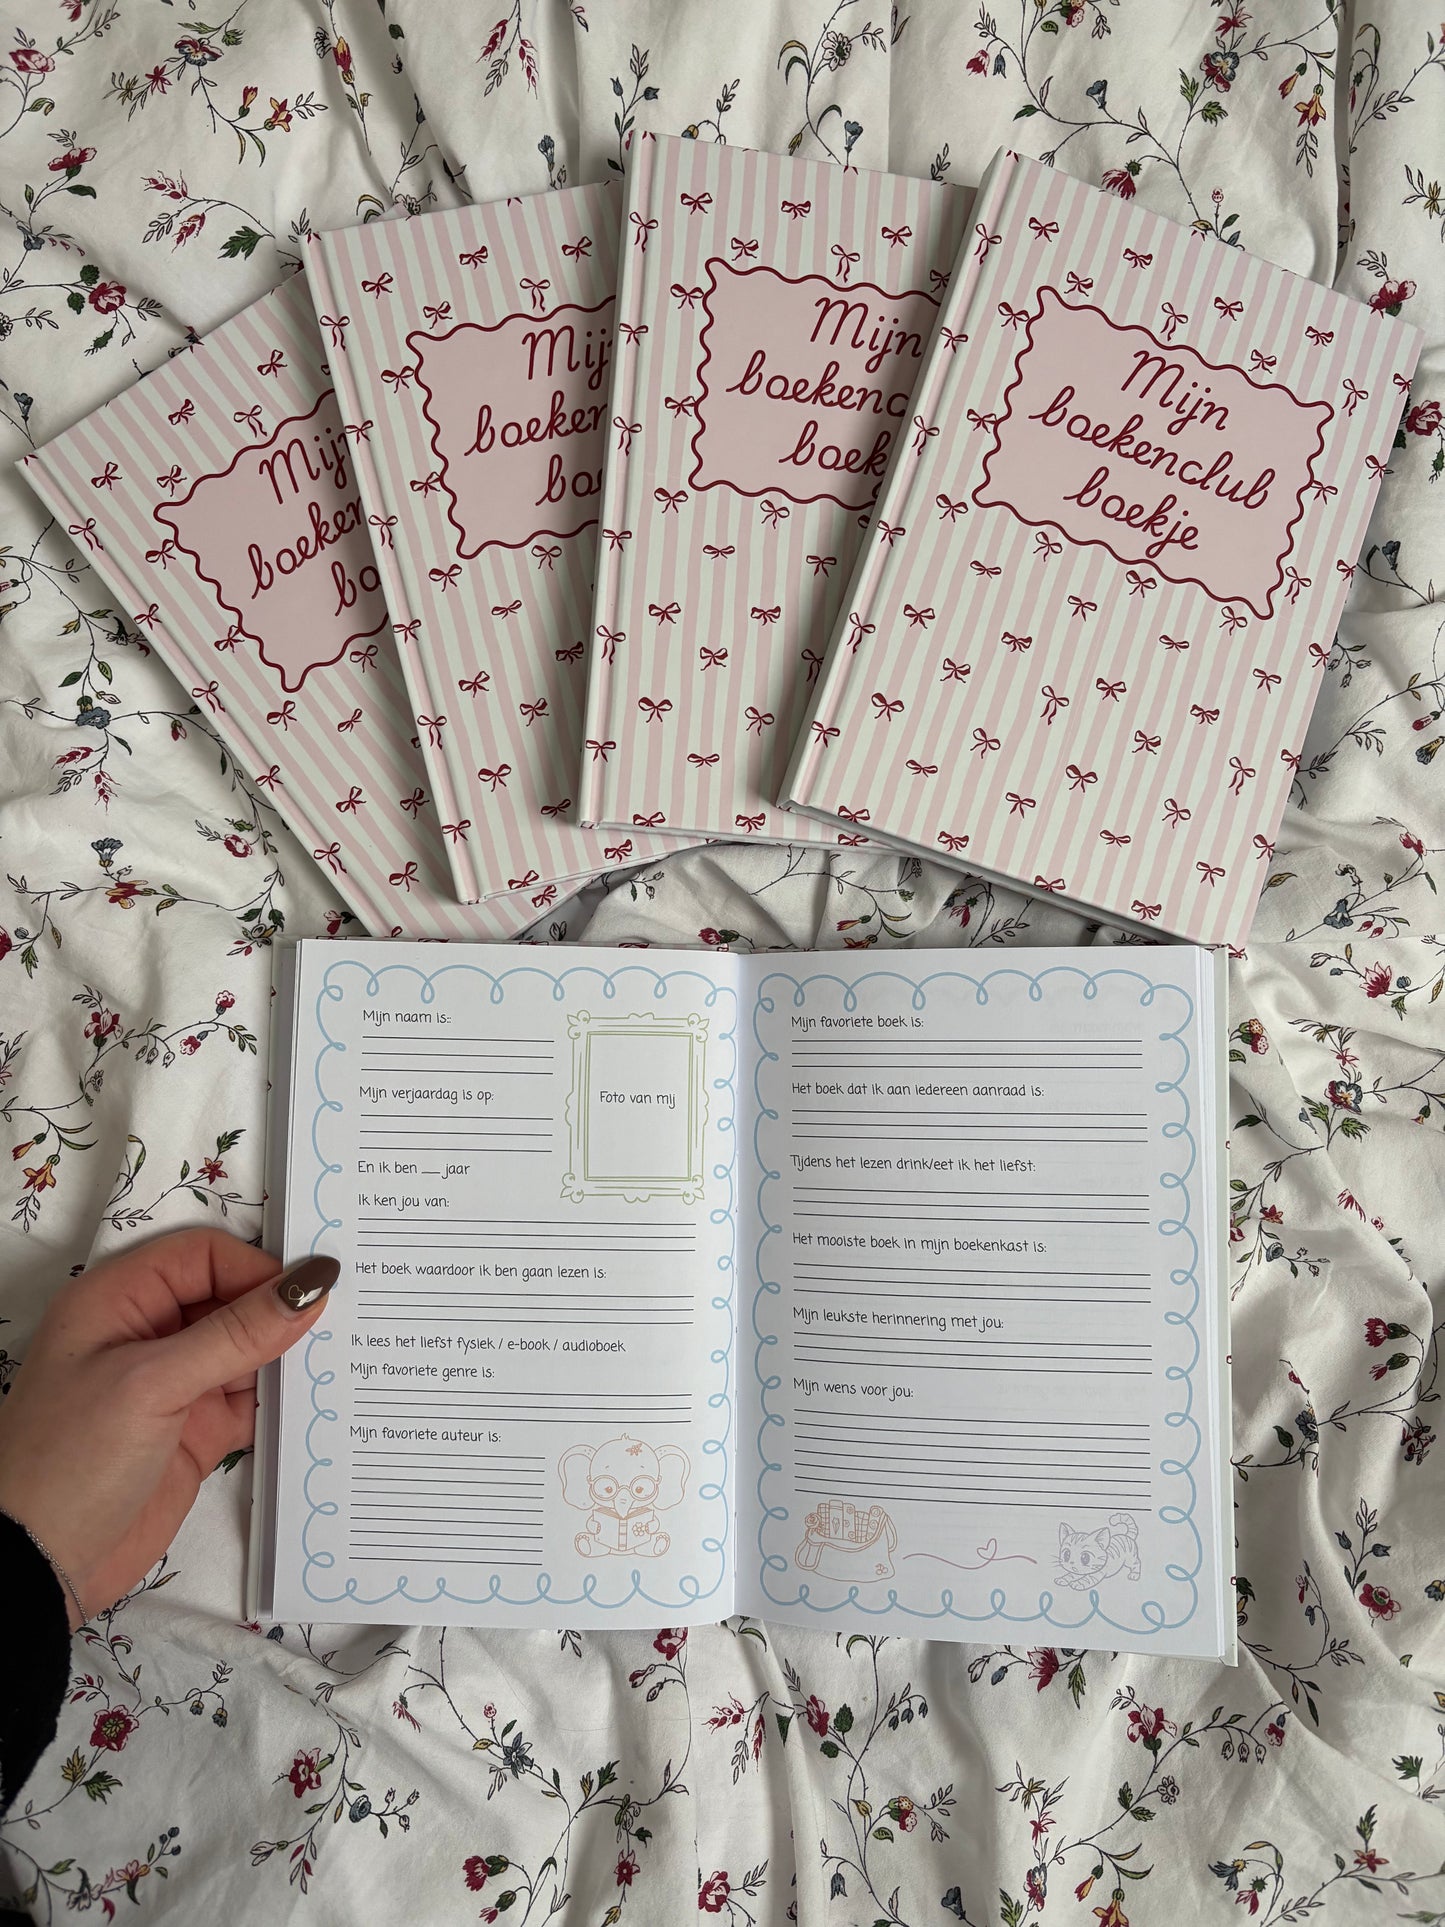 Mij
boeken
bo
Mij
boeken
bo
Mijn
boekenc
boek
Mijn
boekenclub
boekje
Mijn naam is::
Foto van mij
Mijn verjaardag is op:
En ik ben __ jaar
Ik ken jou van:
Het boek waardoor ik ben gaan lezen is:
Ik lees het liefst fysiek / e-book / audioboek
Mijn favoriete genre is:
Mijn favoriete auteur is:
Mijn favoriete boek is:
Het boek dat ik aan iedereen aanraad is:
Tijdens het lezen drink/eet ik het liefst:
Het mooiste boek in mijn boekenkast is:
Mijn leukste herinnering met jou:
Mijn wens voor jou: